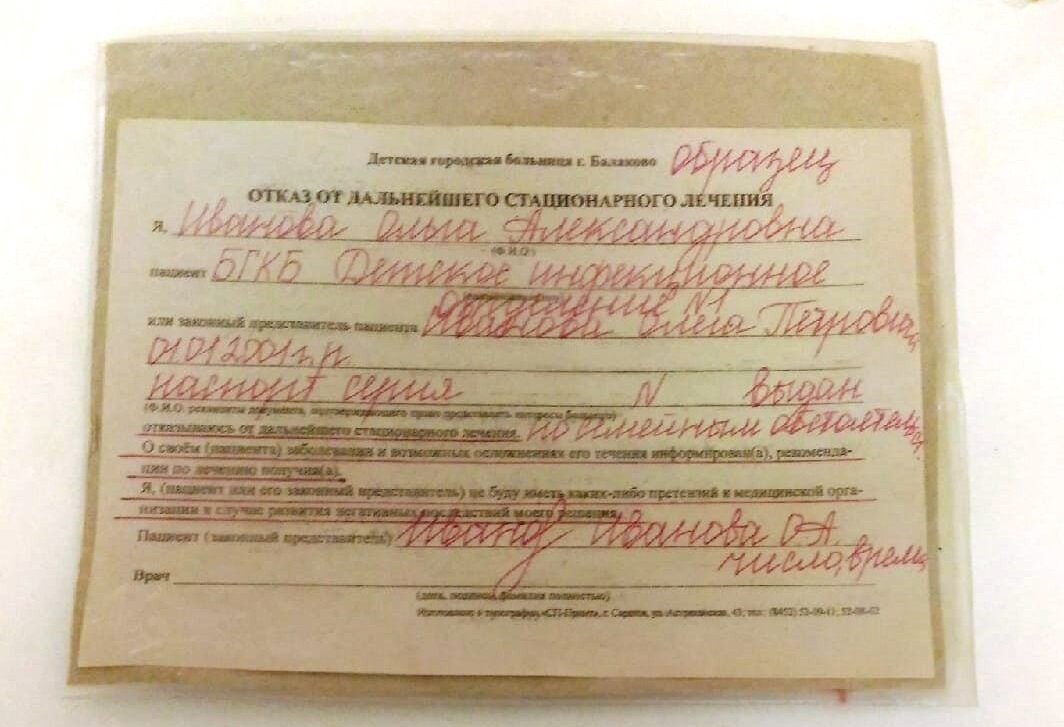 Детская городская больница г. Балаково образец
ОТКАЗ ОТ ДАЛЬНЕЙШЕГО СТАЦИОНАРНОГО ЛЕЧЕНИЯ
Я, Иванова Ольга Александровна
(Ф.И.О.)
пациент БГКБ Детское инфекционное
отделение №1
или законный представитель пациента Иванова Олега Петровича
01.01.2001 г.р.
паспорт серия N выдан
(Ф.И.О. реквизиты документа, подтверждающего право представлять интересы больного)
отказываюсь от дальнейшего стационарного лечения. по семейным обстоятельст.
О своём (пациента) заболевании и возможных осложнениях его течения информирован(а), рекоменда-
ции по лечению получил(а).
Я, (пациент или его законный представитель) не буду иметь каких-либо претензий к медицинской орга-
низации в случае развития негативных последствий моего решения.
Пациент (законный представитель) Иванова О.А.
число, время
Врач
(дата, подпись, фамилия полностью)
Изготовлено в типографии «СП-Принт», г. Саратов, ул. 43, тел.: (8452)